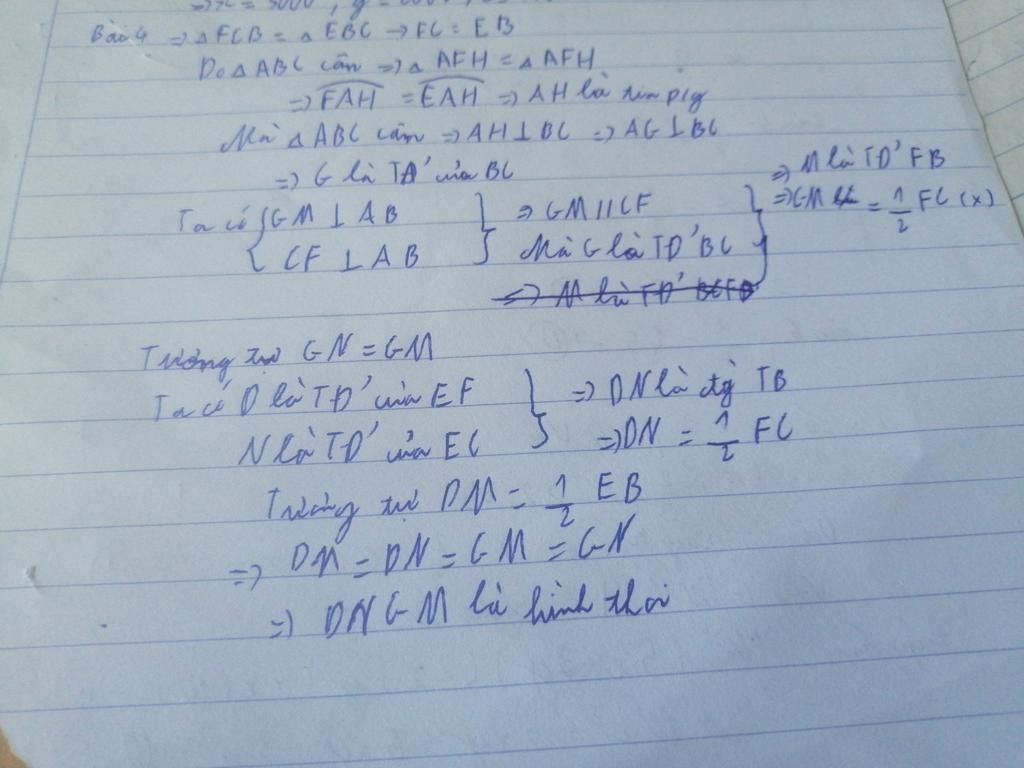 Bài 4 => △FCB = △EBC → FC = EB
Do △ABC cân => △ AFH = △ AFH
=> FAH = EAH => AH là tia p/g
Mà △ABC cân => AH ⊥ BC => AG ⊥ BC
=> G là TĐ' của BC
Ta có { GM ⊥ AB } => GM // CF
CF ⊥ AB Mà G là TĐ' BC
=> M là TĐ' FB
=> GM = 1/2 FC (x)
=> M là TĐ'
Tương tự GN = GM
Ta có D là TĐ' của EF } => DN là đg TB
N là TĐ' của EC => DN = 1/2 FC
Tương tự DM = 1/2 EB
=> DM = DN = GM = GN
=> DNGM là hình thoi